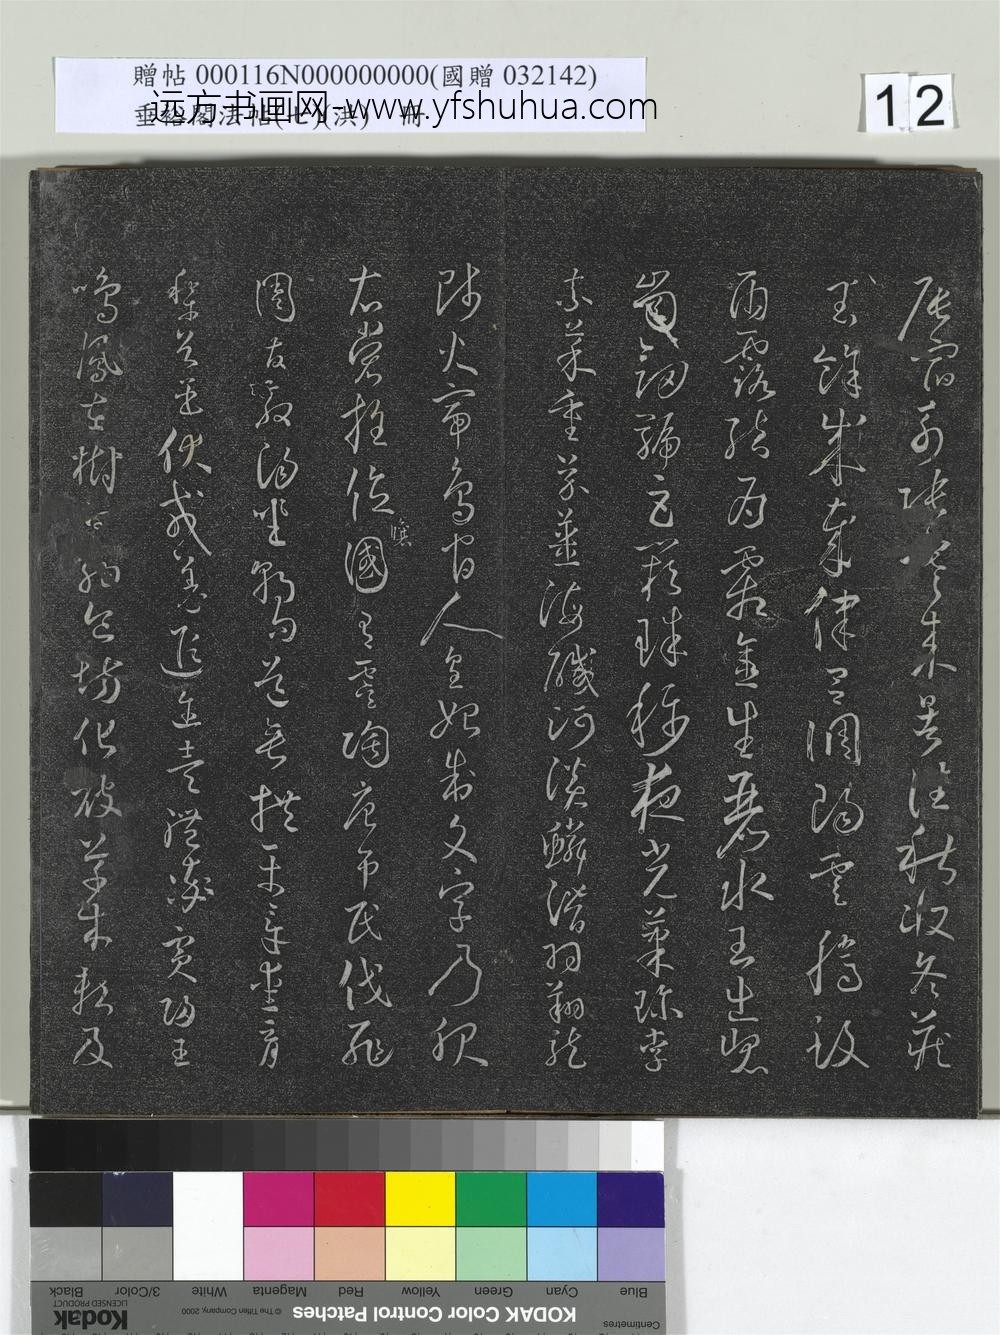 贈帖 000116N000000000(國贈 032142)
垂裕閣法帖(七)(洪) 冊
远方书画网-www.yfshuhua.com
12
辰宿列張寒來暑往秋收冬藏
閏餘成歲律呂調陽雲騰致
雨露結為霜金生麗水玉出崑
崗劍號巨闕珠稱夜光菓珍李
柰菜重芥薑海鹹河淡鱗潛羽翔龍
師火帝鳥官人皇始制文字乃服
衣裳推位讓國有虞陶唐弔民伐罪
周發殷湯坐朝問道垂拱平章愛育
黎首臣伏戎羌遐邇壹體率賓歸王
鳴鳳在樹白駒食場化被草木賴及
Centimetres
KODAK Color Control Patches
© The Tiffen Company, 2000
Kodak
LICENSED PRODUCT
Blue Cyan Green Yellow Red Magenta White 3/Color Black